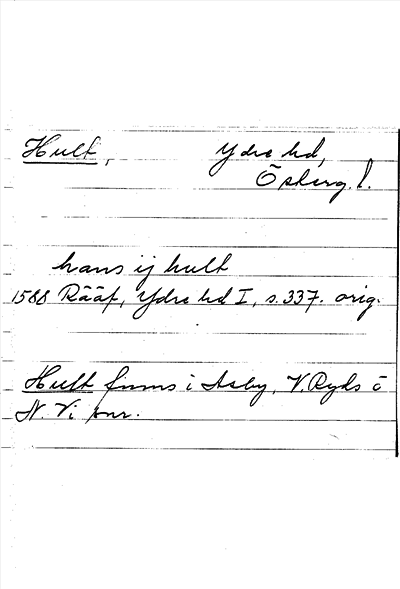 Hult, Ydre hd,
Östergl. l.
hans ij hult
1588 Rääf, Ydre hd I, s. 337. orig.
Hult finns i Asby, V. Ryds o
N. Vi snr.